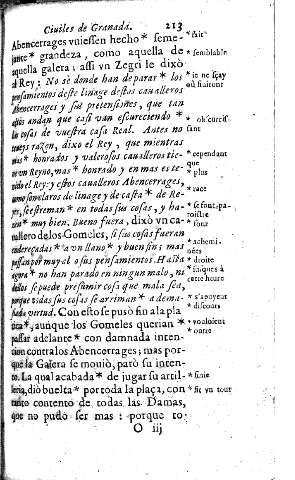 Ciuiles de Granada. 213
Abencerrages vuiessen hecho* seme-
jante* grandeza, como aquella de
aquella galera: assi vn Zegri le dixò
al Rey: No sè donde han de parar* los
pensamientos deste linage destas caualleros
Abencerrages y sus pretensiones, que tan
altos andan que casi van escureciendo*
las cosas de vuestra casa Real. Antes no
teneys razon, dixo el Rey, que mientras
mas* honrados y valerosos caualleros tie-
ne vn Reyno, mas* honrado y en mas es te-
nido el Rey: y estos caualleros Abencerrages,
como son claros de linage y de casta* de Re-
yes, se estreman* en todas sus cosas, y ha-
zen* muy bien. Bueno fuera, dixò vn ca-
uallero de los Gomeles, si sus cosas fueran
endereçadas* a vn llano* y buen fin; mas
passan por muy al o sus pensamientos. Hasta
agora* no han parado en ningun malo, ni
dellos se puede presumir cosa que mala sea,
porque todas sus cosas se arriman* a dema-
siada virtud. Con esto se puso fin a la pla
tica*, aunque los Gomeles querian*
passar adelante* con damnada inten-
cion contra los Abencerrages; mas por-
que la Galera se mouiò, parò su inten-
to. La qual acabada* de jugar su artil-
leria, diò buelta* por toda la plaça, con
tanto contento de todas las Damas,
que no pudo ser mas: porque to-
O iij
* fait
* semblable
* ie ne sçay
où finiront
* obscurcis-
sant
* cependant
que
* plus
* race
* se sont, pa-
roistre
* font
* achemi-
nées
* droite
* iusques à
cette heure
* s'apuyent
* discours
* vouloient
* outre
* finie
* fit vn tour